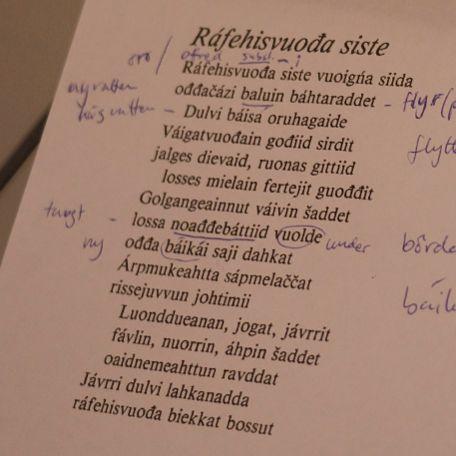 Ráfehisvuođa siste
oro / ofred subst. - i
Ráfehisvuođa siste vuoigŋa siida
nyvatten ođđačázi baluin báhtaraddet - flyr
högvatten - Dulvi báisa oruhagaide
Váigatvuođain gođiid sirdit flytt
jalges dievaid, ruonas gittiid
losses mielain fertejit guođđit
Golgangeainnut váivin šaddet
tungt - lossa noađđebáttiid vuolde under börda
ny ođđa báikái saji dahkat
Árpmukeahtta sápmelaččat
rissejuvvun johtimii báik
Luonddueanan, jogat, jávrrit
fávlin, nuorrin, áhpin šaddet
oaidnemeahttun ravddat
Jávrri dulvi lahkanadda
ráfehisvuođa biekkat bossut